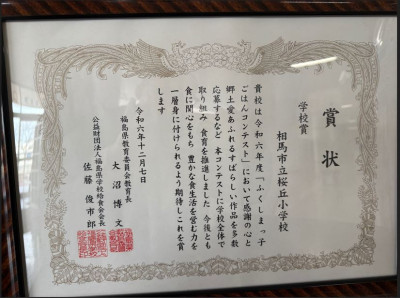 賞状
学校賞
相馬市立桜丘小学校
貴校は令和六年度「ふくしまっ子
ごはんコンテスト」において感謝の心と
郷土愛あふれるすばらしい作品を多数
応募するなど 本コンテストに学校全体で
取り組み 食育を推進しました 今後とも
食に関心をもち 豊かな食生活を営む力を
一層身に付けられるよう期待しこれを賞
します
令和六年十二月七日
福島県教育委員会教育長
大沼博文
公益財団法人福島県学校給食会会長
佐藤俊市郎